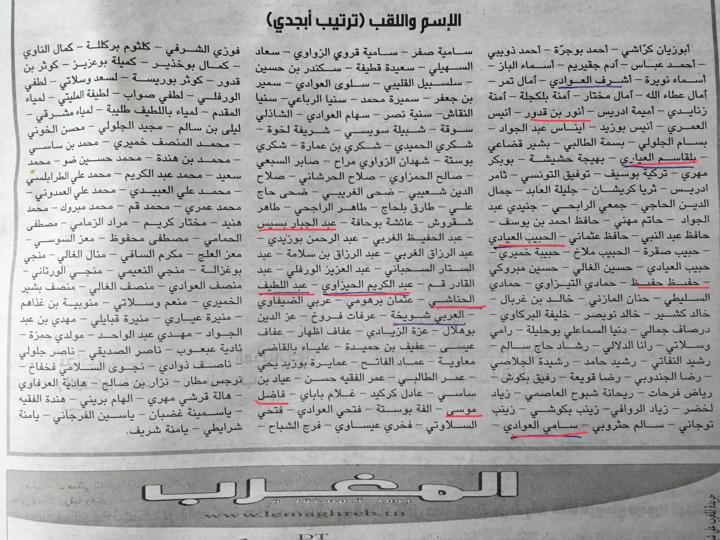 الإسم واللقب (ترتيب أبجدي)
أبوزيان كرّاشي – أحمد بوجرّة – أحمد ذويبي
– أحمد عباس – آدم جقيريم – أسماء الباز –
أسماء نويرة – أشرف العوادي – أمال تمر –
أمال عطاء الله – أمال مختار – آمنة بلكجلة – آمنة
زنايدي – أميمة ادريس – أنور بن قدور – أنيس
العمري – أنيس بوزيد – ايناس عبد الجواد –
بسام الجلولي – بسمة الطالبي – بشير قضاعي
بلقاسم العياري – بهيجة حشيشة – بوبكر
مهري – تركية بوسيف – توفيق التونسي – ثامر
ادريس – ثريا كريشان – جليلة العابد – جمال
الدين الحاجي – جمعي الرابحي – جنيدي عبد
الجواد – حاتم مهني – حافظ احمد بن يوسف –
حافظ عبد النبي – حافظ عثماني – الحبيب العيادي
– حبيب صقرة – الحبيب ملاخ – حبيبة خميري –
حبيب العيادي – حسين الغالي – حسين مبروكي
– حفيظ حفيظ – حمادي التيزاوي – حمادي
السليطي – حنان المازني – خالد بن غربال –
خالد كشير – خالد نويصر – خليفة البركاوي –
درصاف جمالي – دنيا السماعلي بوحليلة – رامي
وسلاتي – رانا الدلالي – رشاد حاج سالم –
رشيد النفاتي – رشيد حامد – رشيدة الجلاصي
– رضا الجندوبي – رضا قويعة – رفيق بكوش –
رياض فرحات – ريحانة شبوح العاصمي – زياد
لخضر – زياد الروافي – زينب بكوشي – زينب
توجاني – سالم حثروبي – سامي العوادي –
سامية صفر – سامية قروي الزواوي – سعاد
السهيلي – سعيدة قطيفة – سكندر بن حسين
– سلسبيل القليبي – سلوى العوادي – سمير
بن جعفر – سميرة محمد – سنيا الرباعي – سنيا
النقاش – سنية نصر – سهام العوادي – الشاذلي
سوقة – شبيلة سويسي – شريفة لخوة –
شكري الحميدي – شكري بن عمارة – شكري
بوستة – شهدان الزواوي مراح – صابر السبعي
– صالح الحمزاوي – صلاح الحرشاني – صلاح
الدين شعيبي – ضحى الغريبي – ضحى حاج
علي – طارق بلحاج – طاهر الراجحي – طاهر
شقروش – عائشة بوحافة – عبد الجبار بسيس
– عبد الحفيظ الغربي – عبد الرحمن بوزيدي –
عبد الرزاق الغربي – عبد الرزاق بن سلامة – عبد
الستار السحباني – عبد العزيز الورفلي – عبد
القادر قم – عبد الكريم الحيزاوي – عبد اللطيف
الحناشي – عثمان برهومي – عربي الضيفاوي
– العربي شويخة – عرفات فروخ – عز الدين
بوهلال – عزة الزيادي – عفاف اظهار – عفاف
عيسى – عفيف بن حميدة – علياء بالقاضي
معاوية – عماد الفاتح – عمايرة بوزيد يحي
– عمر الطالبي – عمر الفقيه حسن – عياد بن
ساسي – عادل كركيد – غلام باباي – فاضل
موسى – الفة بوستة – فتحي العوادي – فتحي
السلاوتي – فخري عيساوي – فرج الشباح –
فوزي الشرفي – كلثوم بركلة – كمال الناوي
– كمال بوخذير – كميلة بوعزيز – كوثر بن
قدور – كوثر بوريسة – لسعد وسلاتي – لطفي
الورفلي – لطفي صواب – لطيفة المليتي – لمياء
المقدم – لمياء باللطيف طليبة – لمياء مشرقي –
ليلى بن سالم – مجيد الجلولي – محسن الخوني
– محمد المنصف خميري – محمد بن ساسي
– محمد بن هندة – محمد حسين ضو – محمد
سعيد – محمد عبد الكريم – محمد علي الطرابلسي
– محمد علي العبيدي – محمد علي العدوني –
محمد عمري – محمد قم – محمد مبروك – محمد
هنيد – مختار كريم – مراد الزمامي – مصطفى
الحمامي – مصطفى محفوظ – معز السوسي –
معز العلج – مكرم الساقي – منال الغالي – منجي
بوغزالة – منجي النعيمي – منجي الورتاني –
منصف العوادي – منصف الغالي – منصف بشير
الخميري – منعم وسلاتي – منوبية بن غذاهم
– منيرة عياري – منيرة قبايلي – مهدي بن عبد
الجواد – مهدي عبد الواحد – مولدي حمزة –
نادية عبعوب – ناصر الصديقي – ناصر جلولي
– ناصف ذوادي – نجوى السلامي فخفاخ –
نرجس مطار – نزار بن صالح – هادية العرفاوي
– هالة قرشي مهري – الهام بريني – هندة الفقيه
– ياسمينة غضبان – ياسين الفرجاني – يامنة
شرايطي – يامنة شريف.
المغرب
www.lemaghreb.tn